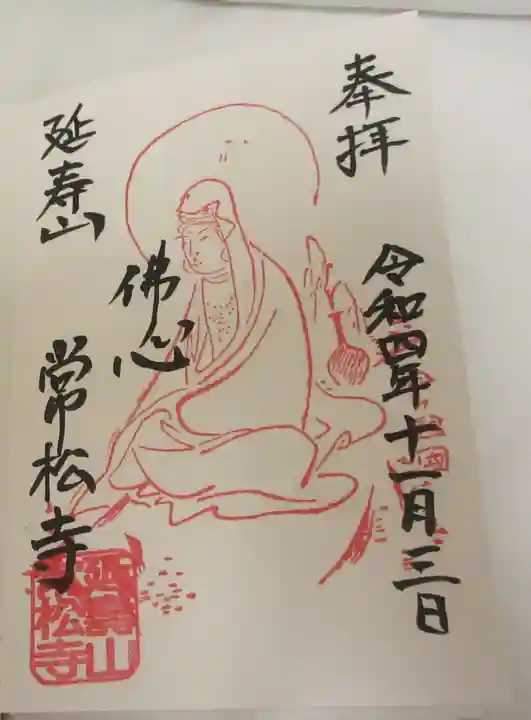 奉拝
令和四年十一月三日
佛心
延寿山
常松寺
延壽山
常松寺